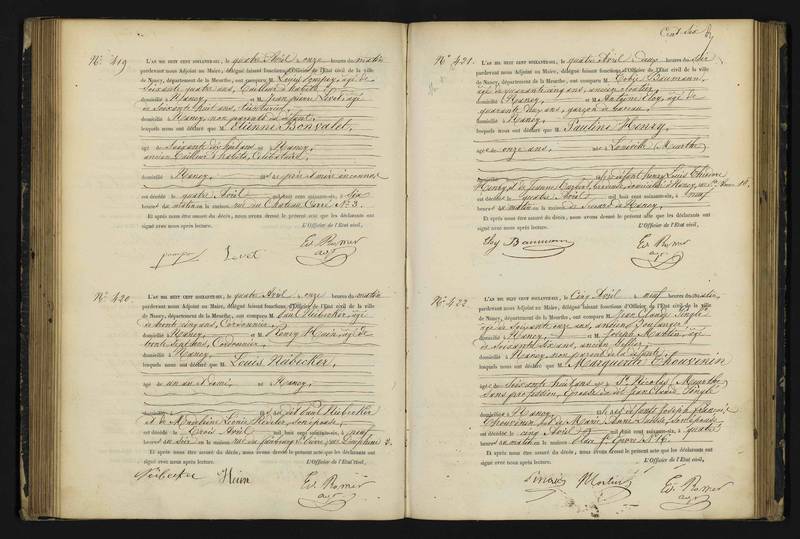 Cent Six
N° 419
L'AN MIL HUIT CENT SOIXANTE-SIX, le quatre Avril à onze heures du matin
pardevant nous Adjoint au Maire, délégué faisant fonctions d'Officier de l'État civil de la ville
de Nancy, département de la Meurthe, ont comparu M. Louis pompey, âgé de
Soixante quatre ans, tailleur d'habits
domicilié à Nancy, et M. Jean pierre Levet, âgé
de Soixante huit ans,
domicilié à Nancy, non parents du défunt,
lesquels nous ont déclaré que M. Etienne Bonvalet,
âgé de Soixante dix huit ans né à Nancy,
ancien tailleur d'habits, Célibataire,
domicilié à Nancy, fil de père et mère inconnus
est décédé le quatre Avril mil huit cent soixante-six, à Six
heures du matin en la maison rue du Chateau Carré N° 3.
Et après nous être assuré du décès, nous avons dressé le présent acte que les déclarants ont
signé avec nous après lecture. L'Officier de l'État civil,
pompey Levet
N° 420
L'AN MIL HUIT CENT SOIXANTE-SIX, le quatre Avril à onze heures du matin
pardevant nous Adjoint au Maire, délégué faisant fonctions d'Officier de l'État civil de la ville
de Nancy, département de la Meurthe, ont comparu M. Paul Neibecker âgé
de trente cinq ans, Cordonnier,
domicilié à Nancy, et M. Henry Hein âgé de
trente sept ans, Cordonnier,
domicilié à Nancy,
lesquels nous ont déclaré que M. Louis Neibecker,
âgé de un an et demi, né à Nancy,
domicilié à fil de Paul Neibecker
et de Madeleine Léonie son épouse,
est décédé le trois Avril mil huit cent soixante-six, à neuf
heures du soir en la maison rue du faubourg St Pierre, 3.
Et après nous être assuré du décès, nous avons dressé le présent acte que les déclarants ont
signé avec nous après lecture. L'Officier de l'État civil,
Neibecker Hein
N° 421
L'AN MIL HUIT CENT SOIXANTE-SIX, le quatre Avril à Deux heures du Soir
pardevant nous Adjoint au Maire, délégué faisant fonctions d'Officier de l'État civil de la ville
de Nancy, département de la Meurthe, ont comparu M. Tobie Baumann,
âgé de quarante cinq ans,
domicilié à Nancy, et M. Antoine Eloy, âgé de
quarante deux ans, garçon de bureau,
domicilié à Nancy,
lesquels nous ont déclaré que M. Pauline Henry,
âgé de onze ans, né à Lunéville (Meurthe)
domicilié à fil de défunt Henry Louis
Henry, et de Jeanne
est décédée le quatre Avril mil huit cent soixante-six, à neuf
heures du matin en la maison de Secours de Nancy,
Et après nous être assuré du décès, nous avons dressé le présent acte que les déclarants ont
signé avec nous après lecture. L'Officier de l'État civil,
Eloy Baumann
N° 422
L'AN MIL HUIT CENT SOIXANTE-SIX, le Cinq Avril à neuf heures du matin,
pardevant nous Adjoint au Maire, délégué faisant fonctions d'Officier de l'État civil de la ville
de Nancy, département de la Meurthe, ont comparu M. Jean Claude
âgé de Soixante onze ans, ancien Boulanger
domicilié à Nancy, et M. Martin, âgé
de Soixante six ans, ancien
domicilié à Nancy, non parent de la défunte,
lesquels nous ont déclaré que M. Marguerite Thouvenin
âgée de Soixante huit ans née à St Nicolas (Meurthe)
Sans profession, épouse du dit Jean Claude
domiciliée à Nancy, fil de défunts Joseph François
Thouvenin et de Marie Anne son épouse
est décédée le cinq Avril mil huit cent soixante-six, à quatre
heures du matin en la maison place St Epvre N° 16.
Et après nous être assuré du décès, nous avons dressé le présent acte que les déclarants ont
signé avec nous après lecture. L'Officier de l'État civil,
Martin